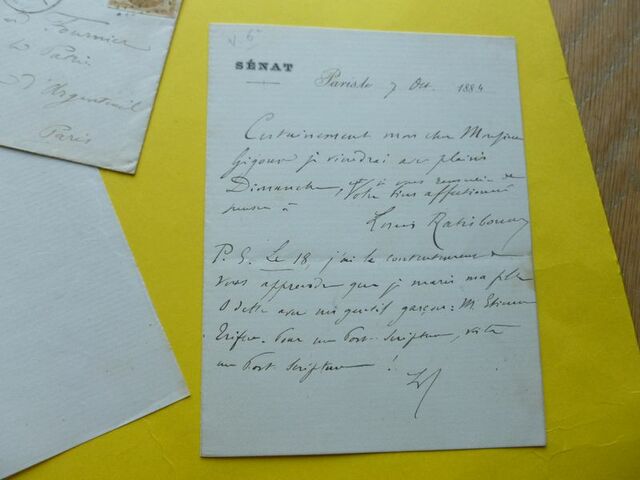 Fournier
Paris
d'Argenteuil
Paris
SÉNAT
Paris le 7 Oct. 1884
Certainement mon cher Monsieur
Gigoux je viendrai avec plaisir
Dimanche, et je vous remercie de
penser à
Votre bien affectionné
Louis Ratisbonne
P. S. Le 18, j'ai le contentement de
vous apprendre que je marie ma fille
Odette avec un gentil garçon: M. Etienne
Pour un Post-Scriptum, voilà
un Post-Scriptum!